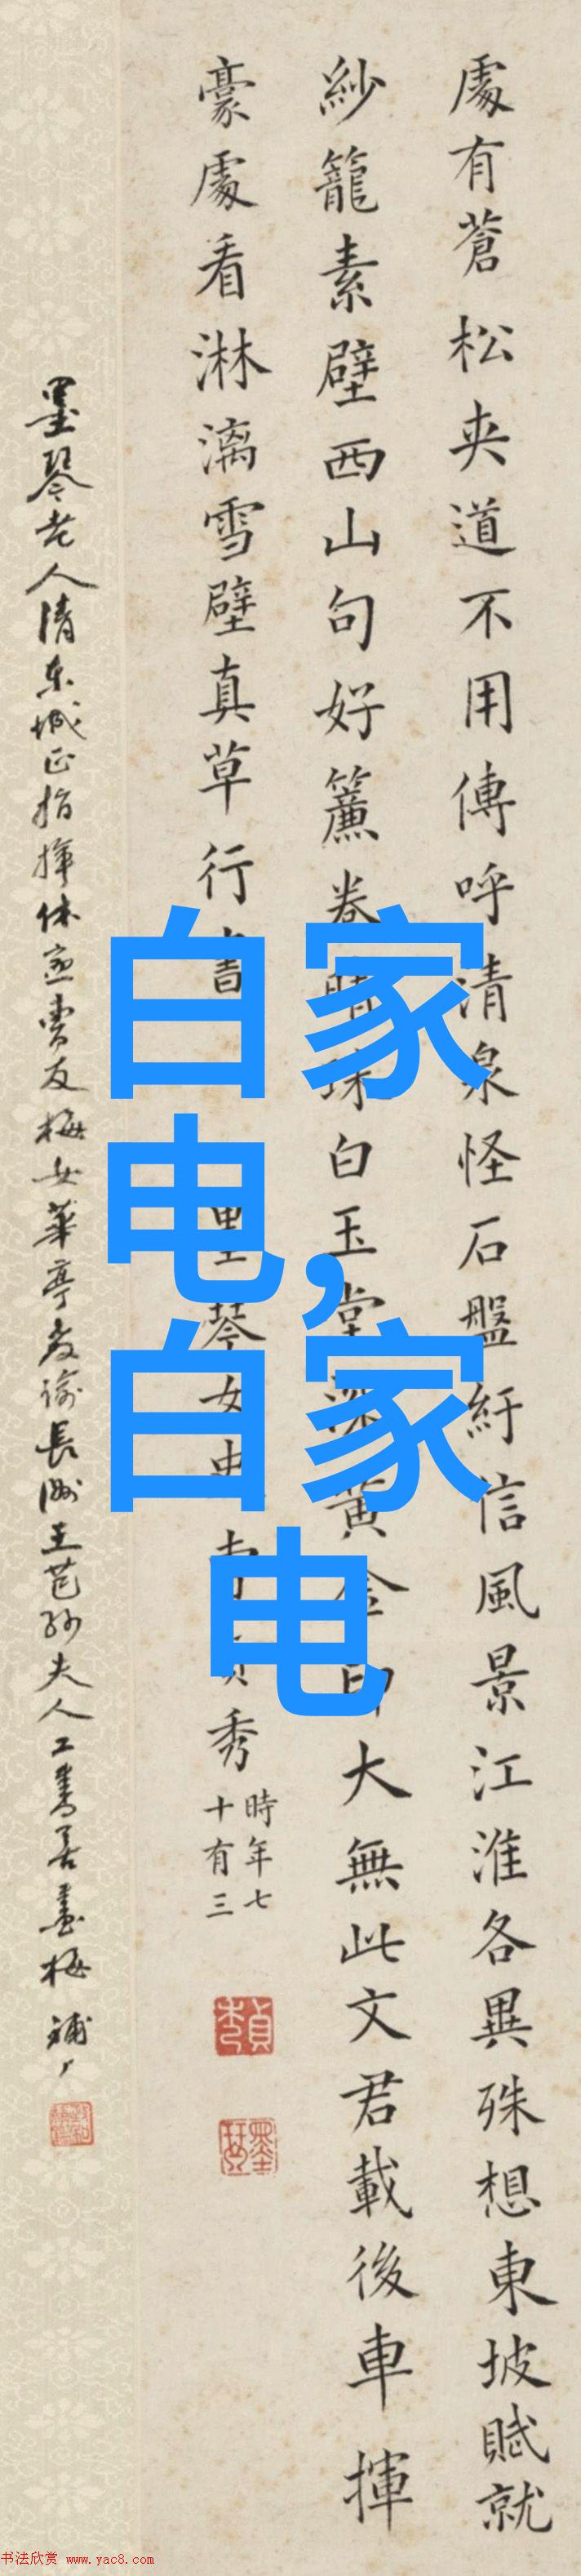 處有蒼松夾道不用傳呼清泉怪石盤紆信風景江淮各異殊想東坡賦就
紗籠素壁西山句好簾卷晴珠白玉堂深黃金印大無此文君載後車揮
豪處看淋漓雪壁真草行書 墨琴女史曹貞秀
時年七
十有三
墨琴老人清东城正指揮休友梅女華亭教諭長洲王芑孫夫人工書善畫梅
白家
电,
白家
电
书法欣赏 www.yac8.com